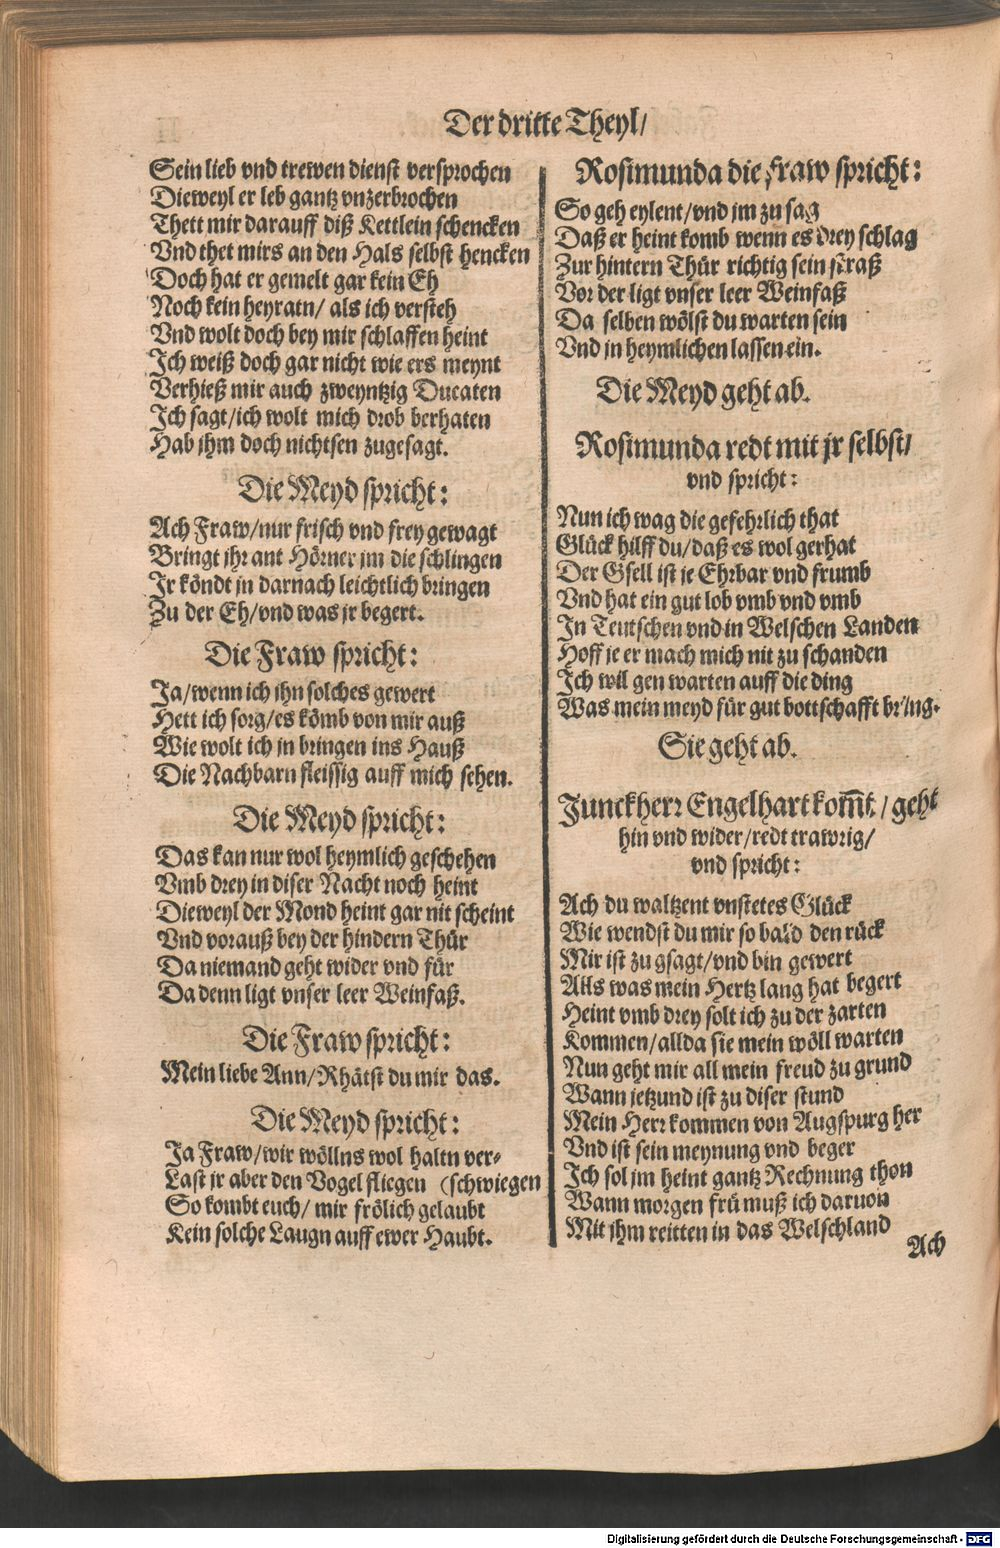 Der dritte Theyl/
Sein lieb vnd trewen dienst versprochen
Dieweyl er leb gantz vnzerbrochen
Thett mir darauff diß Kettlein schencken
Vnd thet mirs an den Hals selbst hencken
Doch hat er gemelt gar kein Eh
Noch kein heyratn/ als ich versteh
Vnd wolt doch bey mir schlaffen heint
Ich weiß doch gar nicht wie ers meynt
Verhieß mir auch zweyntzig Ducaten
Ich sagt/ich wolt mich drob berhaten
Hab jhm doch nichtsen zugesagt.
Die Meyd spricht:
Ach Fraw/nur frisch vnd frey gewagt
Bringt jhr ant Hörner jm die schlingen
Ir köndt jn darnach leichtlich bringen
Zu der Eh/vnd was jr begert.
Die Fraw spricht:
Ja/wenn ich jhn solches gewert
Hett ich sorg/es kömb von mir auß
Wie wolt ich jn bringen ins Hauß
Die Nachbarn fleissig auff mich sehen.
Die Meyd spricht:
Das kan nur wol heymlich geschehen
Vmb drey in diser Nacht noch heint
Dieweyl der Mond heint gar nit scheint
Vnd vorauß bey der hindern Thür
Da niemand geht wider vnd für
Da denn ligt vnser leer Weinfaß.
Die Fraw spricht:
Mein liebe Ann/Rhätst du mir das.
Die Meyd spricht:
Ja Fraw/wir wöllns wol haltn ver-
Last jr aber den Vogel fliegen (schwiegen
So kombt euch/ mir frölich gelaubt
Kein solche Laugn auff ewer Haubt.
Rosimunda die Fraw spricht:
So geh eylent/vnd jm zu sag
Daß er heint komb wenn es drey schlag
Zur hintern Thür richtig sein straß
Vor der ligt vnser leer Weinfaß
Da selben wölst du warten sein
Vnd jn heymlichen lassen ein.
Die Meyd geht ab.
Rosimunda redt mit jr selbst/
vnd spricht:
Nun ich wag die gefehrlich that
Glück hilff du/daß es wol gerhat
Der Gsell ist je Ehrbar vnd frumb
Vnd hat ein gut lob vmb vnd vmb
In Teutschen vnd in Welschen Landen
Hoff je er mach mich nit zu schanden
Ich wil gen warten auff die ding
Was mein meyd für gut bottschafft bring.
Sie geht ab.
Junckherr Engelhart kom̄t/ geht
hin vnd wider/redt trawrig/
vnd spricht:
Ach du waltzent vnstetes Glück
Wie wendst du mir so bald den rück
Mir ist zu gsagt/vnd bin gewert
Alls was mein Hertz lang hat begert
Heint vmb drey solt ich zu der zarten
Kommen/allda sie mein wöll warten
Nun geht mir all mein freud zu grund
Wann jetzund ist zu diser stund
Mein Herr kommen von Augspurg her
Vnd ist sein meynung vnd beger
Ich sol jm heint gantz Rechnung thon
Wann morgen frü muß ich daruon
Mit jhm reitten in das Welschland
Ach
Digitalisierung gefördert durch die Deutsche Forschungsgemeinschaft - DFG